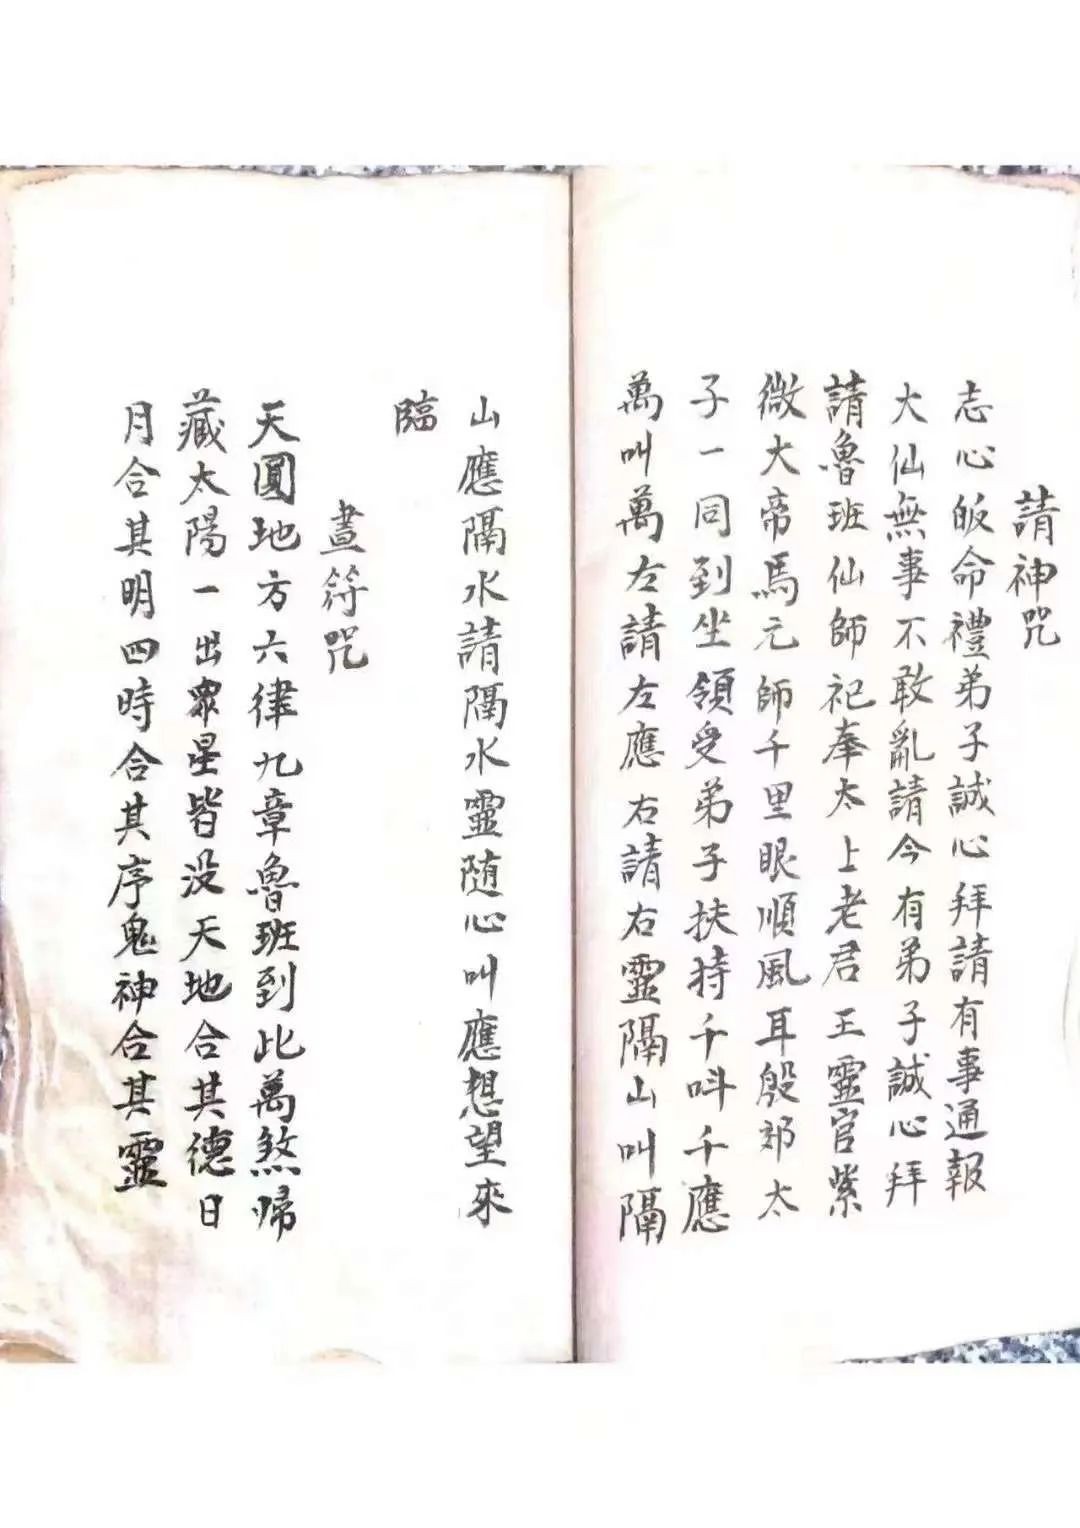 請神咒
志心皈命禮弟子誠心拜請有事通報
大仙無事不敢亂請今有弟子誠心拜
請魯班仙師祀奉太上老君王靈官紫
微大帝馬元師千里眼順風耳殷郊太
子一同到坐領受弟子扶持千呌千應
萬叫萬左請左應右請右靈隔山叫隔
山應隔水請隔水靈随心叫應想望來
臨
畫符咒
天圓地方六律九章魯班到此萬煞帰
藏太陽一出眾星皆没天地合其德日
月合其明四時合其序鬼神合其靈